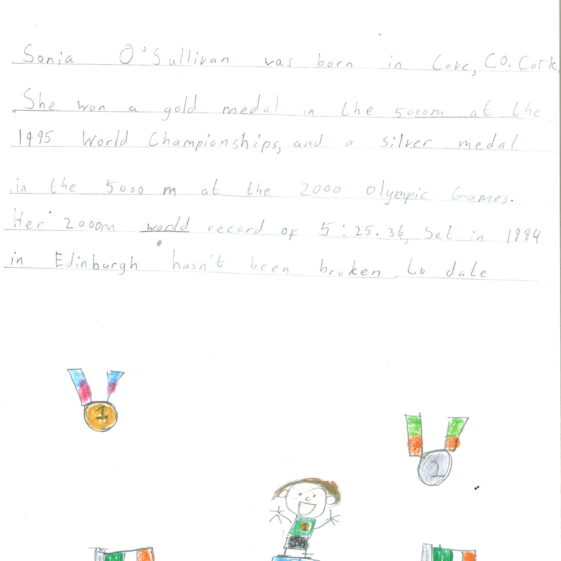 Sonia O'Sullivan was born in Cove, CO. Cork.
She won a gold medal in the 5000m at the
1995 World Championships, and a silver medal
in the 5000 m at the 2000 Olympic Games.
Her 2000m world record of 5:25.36, Set in 1994
in Edinburgh hasn't been broken to date
1
2